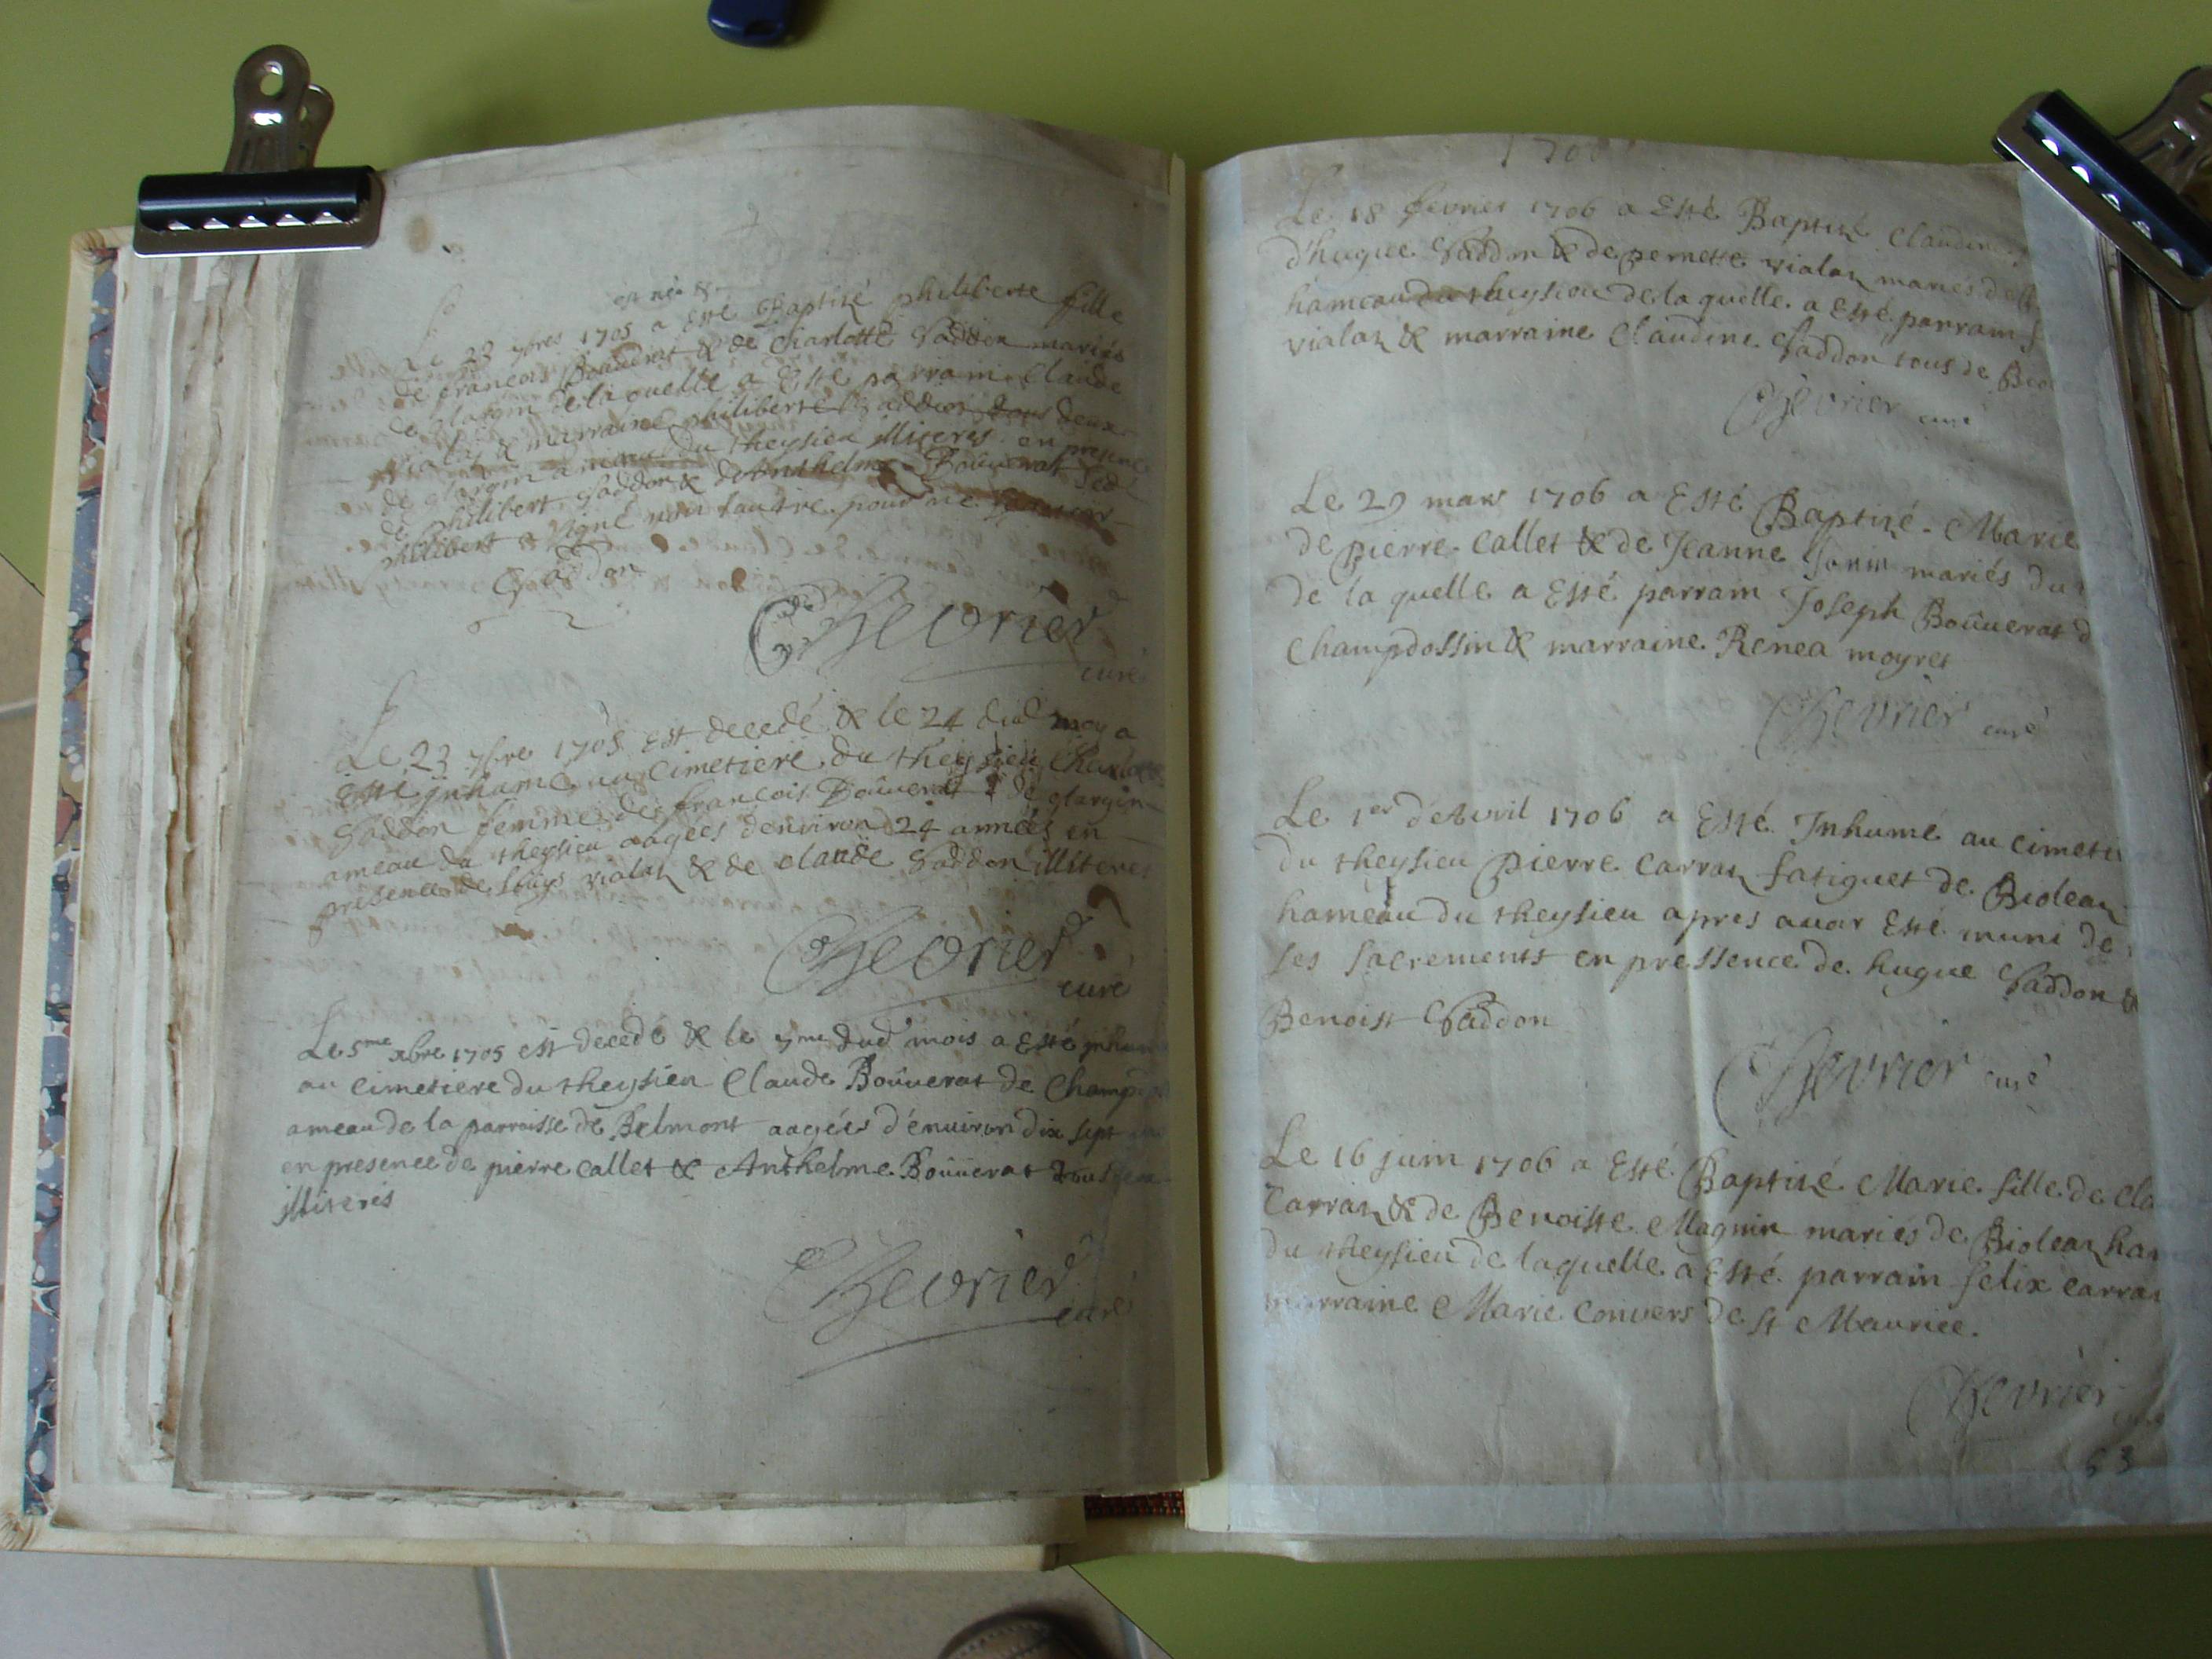 est née &
Le 23 7bres 1705 a Esté Baptisé philiberte fille
de francois Boûuerat & de Charlotte Gaddon mariés
de glargin de la quelle a Esté parrain Claude
vialaz & marraine philiberte Gaddon tous deux
de glargin ameau du theysieu illiteres en presence
de philibert Gaddon & d'Anthelme Boûuerat led
philibert a signé non lautre pour ne
Gaddon
Chevrier
curé
Le 23 7bre 1705 est decedé & le 24 dud moy a
esté jnhumé au cimetiere du theysieu Charlotte
Gaddon femme de francois Boûuerat de glargin
ameau du theysieu aagées denuiron 24 années en
présence de vialaz & de claude Gaddon illiteres
Chevrier
curé
Le 5me xbre 1705 est decedé & le dud mois a Esté jnhum
au cimetiere du theysieu Claude Boûuerat de Champ
ameau de la parroisse de Belmont aagées d'énuiron dix sept
en presence de pierre callet & Anthelme Boûuerat tous
illiteres
Chevrier
curé
1706
Le 18 feurier 1706 a Esté Baptisé Claudine
d'hugue Gaddon & de pernette vialaz mariés de
hameau du theysieu de la quelle a Esté parrain
vialaz & marraine Claudine Gaddon tous de Bio
Chevrier curé
Le 29 mars 1706 a Esté Baptisé Marie
de pierre callet & de Jeanne mariés du
de la quelle a Esté parrain Joseph Boûuerat d
Champdossin & marraine Renea moyret
Chevrier curé
Le 1er d'Avril 1706 a Esté Inhumé au cimeti
du theysieu pierre Carraz fatiguet de Bioleaz
hameau du theysieu apres auoir Esté muni de
ses sacrements en pressence de hugue Gaddon &
Benoist Gaddon
Chevrier curé
Le 16 juin 1706 a Esté Baptisé Marie fille de cla
Carraz & de Benoiste Magnin mariés de Bioleaz ham
du theysieu de laquelle a Esté parrain felix carraz
marraine Marie Convers de st Maurice.
Chevrier
curé
53